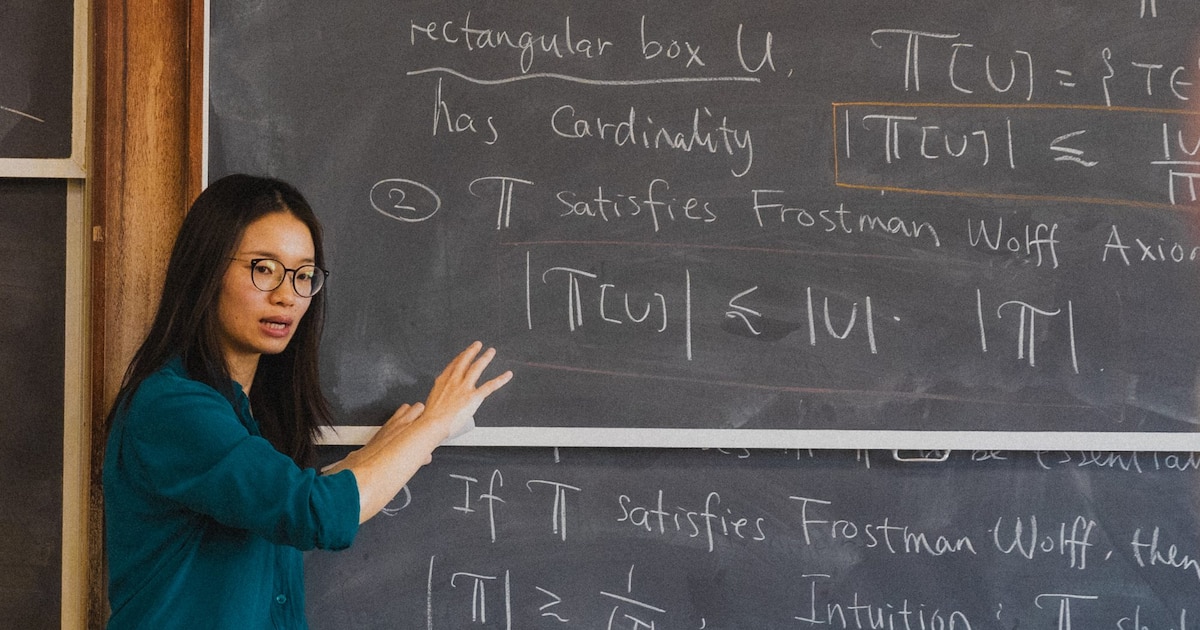 rectangular box U,
𝕋[U] = { T ∈
has Cardinality
|𝕋[U]| ≲ |U
② 𝕋 satisfies Frostman Wolff Axio
|𝕋[U]| ≲ |U| · |𝕋|.
be essential
If 𝕋 satisfies Frostman Wolff, then
|𝕋| ≳ 1
Intuition : 𝕋